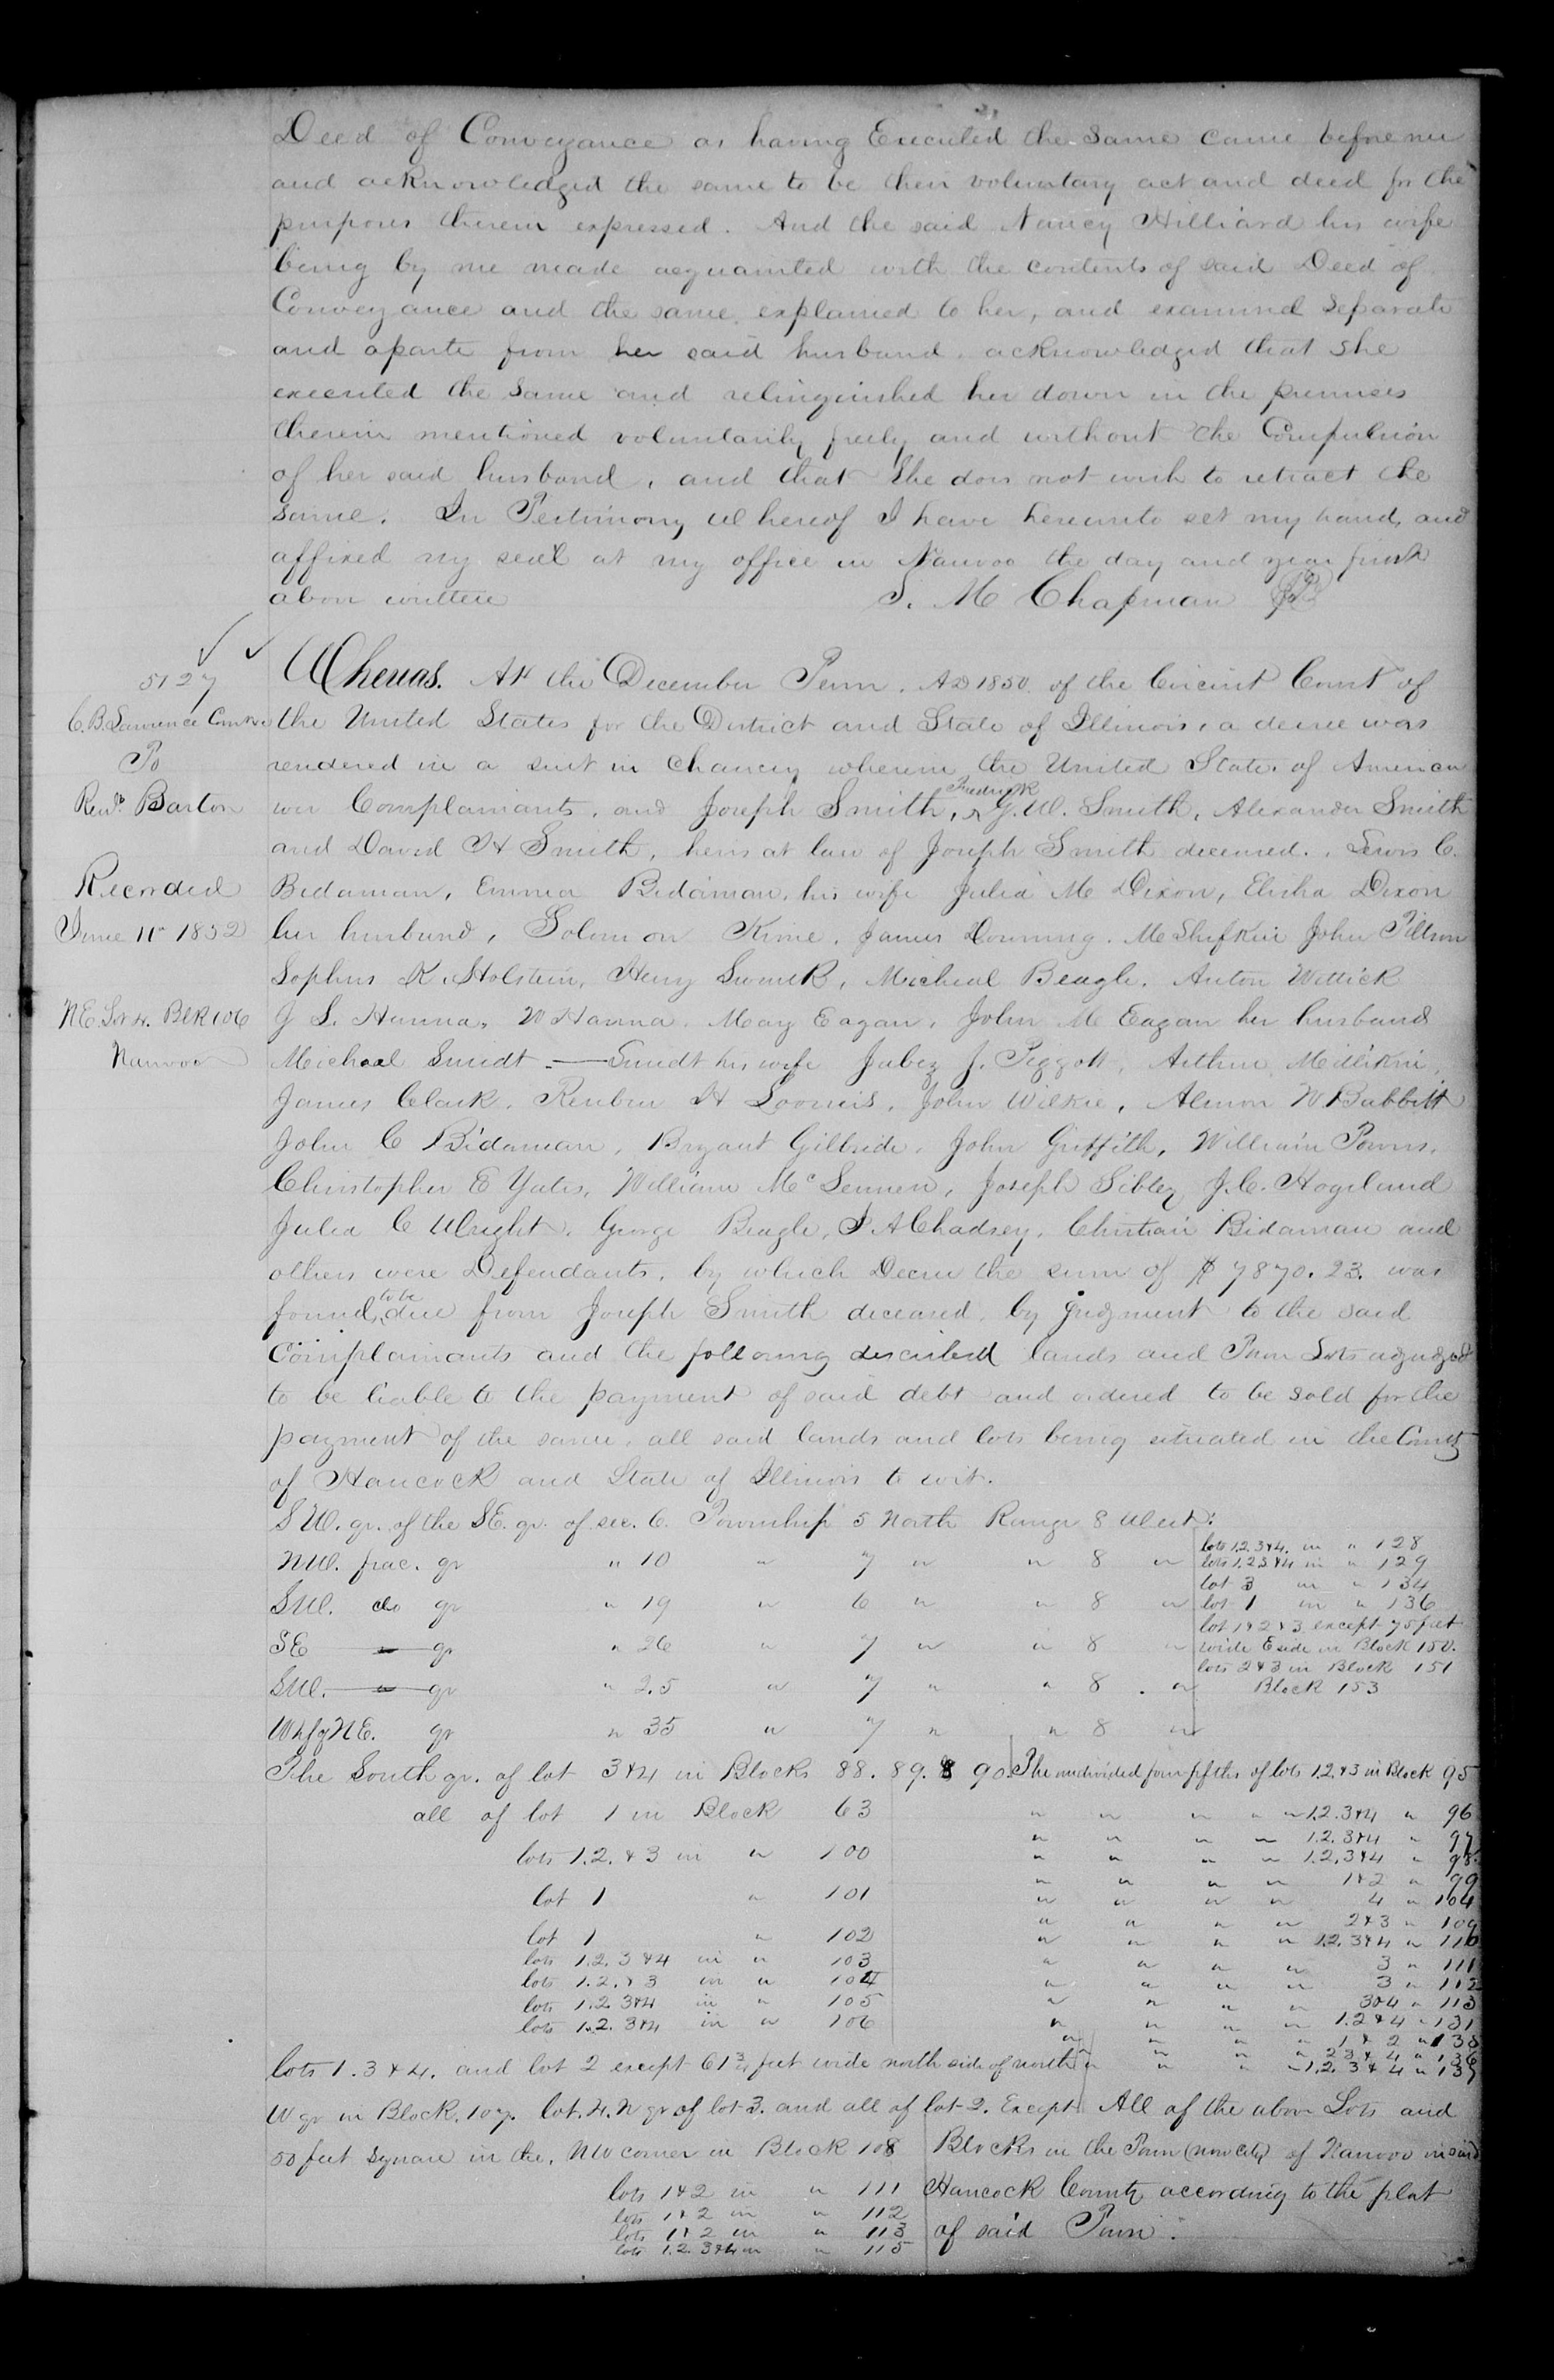 Deed of Conveyance as having Executed the same came before me
and acknowledged the same to be their voluntary act and deed for the
purposes therein expressed. And the said Nancy Hilliard his wife
being by me made acquainted with the contents of said Deed of
Conveyance and the same explained to her, and examined separate
and aparte from her said husband. acknowledged that she
executed the same and relinquished her dower in the premises
therein mentioned voluntarily freely and without the Compulsion
of her said husband, and that She does not wish to retract the
same. In Testimony Whereof I have hereunto set my hand, and
affixed my seal at my office in Nauvoo the day and year first
above written S. M Chapman
5127
C. B. Lawrence
To
Barton
Recorded
June 11th 1852
NE Lot 4. Blk 106
Nauvoo
Whereas. At the December Term. AD 1850. of the Circuit Court of
the United States for the District and State of Illinois, a decree was
rendered in a suit in Chancery wherein the United States of America
were Complainants, and Joseph Smith, Fredrick G. W. Smith, Alexander Smith
and David H Smith, heirs at law of Joseph Smith deceased., Lewis C.
Bidaman, Emma Bidaman, his wife Julia M Dixon, Elisha Dixon
her husband, Solomon Kime. James Downing. John Tillson
Sophus K. Holstein, Henry Swink, Micheal Beagle. Anton Wettick
J S. Hanna, W Hanna. May Eagan, John M Eagan her husband
Michael Smidt — Smidt his wife Jabez J. Piggott, Arthur Millikin,
James Clark, Reuben H Loomis, John Wilkie, Almon W Babbitt
John C Bidaman, Bryant Gilbride, John Griffith, William Powers,
Christopher E Yates, William McLennen, Joseph Sibley J. C. Hogeland
Julia C Wright, George Beagle, J A Chadsey, Christian Bidaman and
others were Defendants, by which Decree the sum of $7870.23. was
found, to be due from Joseph Smith deceased, by judgment to the said
Complainants and the following described lands and Town Lots adjudged
to be liable to the payment of said debt and ordered to be sold for the
payment of the same, all said lands and lots being situated in the County
of Hancock and State of Illinois to wit.
S W. qr. of the SE. qr. of sec. 6. Township 5 North Range 8 West:
NW. frac. qr " 10 " 7 " " 8 "
SW. do qr " 19 " 6 " " 8 "
SE " qr " 26 " 7 " " 8 "
SW. " qr " 25 " 7 " " 8 "
Whf of NE. qr " 35 " 7 " " 8 "
lots 1.2.3&4. in " 128
lots 1.2.3.&4 in " 129
lot 3 in " 134
lot 1 in " 136
lot 1 & 2 & 3 except 75 feet
wide E side in Block 150.
lots 2 & 3 in Block 151
Block 153
The South qr. of lot 3&4 in Blocks 88. 89. & 90.
all of lot 1 in Block 63
lots 1.2. & 3 in " 100
lot 1 " 101
lot 1 " 102
lots 1.2.3 &4 in " 103
lots 1.2. & 3 in " 104
lots 1.2.3&4 in " 105
lots 1.2.3&4 in " 106
The undivided four fifths of lots 1.2.&3 in Block 95
" " " " " 1.2.3&4 " 96
" " " " 1.2.3&4 " 97
" " " " 1.2.3&4 " 98
" " " " 1&2 " 99
" " " " 4 " 104
" " " " 2&3 " 109
" " " " 1.2.3&4 " 110
" " " " 3 " 111
" " " " 3 " 112
" " " " 3&4 " 113
" " " " 1.2&4 " 131
" " " " 1 & 2 " 138
" " " 2 3 & 4 " 136
" " " 1.2.3 & 4 " 137
lots 1. 3 & 4. and lot 2 except 61¾ feet wide north side of north
W qr in Block. 107. lot. 4. N qr of lot 3. and all of lot 2. Except
50 feet square in the, NW corner in Block 108
lots 1&2 in " 111
lots 1&2 in " 112
lots 1&2 in " 113
lots 1.2.3&4 in " 115
All of the above Lots and
Blocks in the Town (now City) of Nauvoo in said
Hancock County according to the plat
of said Town.